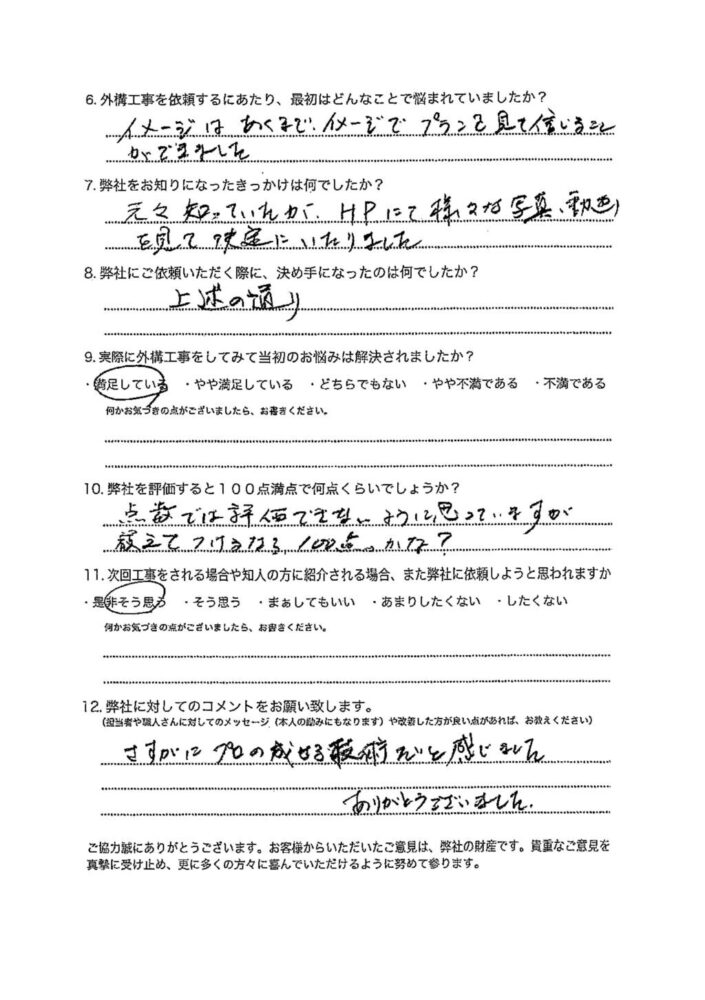 6. 外構工事を依頼するにあたり、最初はどんなことで悩まれていましたか？
イメージは あくまで、イメージで プランを見て信じること
ができました
7. 弊社をお知りになったきっかけは何でしたか？
元々 知っていたが、HPにて様々な写真、動画
を見て 決定にいたりました
8. 弊社にご依頼いただく際に、決め手になったのは何でしたか？
上述の通り
9. 実際に外構工事をしてみて当初のお悩みは解決されましたか？
・満足している ・やや満足している ・どちらでもない ・やや不満である ・不満である
何かお気づきの点がございましたら、お書きください。
10. 弊社を評価すると１００点満点で何点くらいでしょうか？
点数では評価できないように思っていますが
つけるなら、100点。かな？
11. 次回工事をされる場合や知人の方に紹介される場合、また弊社に依頼しようと思われますか
・是非そう思う ・そう思う ・まぁしてもいい ・あまりしたくない ・したくない
何かお気づきの点がございましたら、お書きください。
12. 弊社に対してのコメントをお願い致します。
（担当者や職人さんに対してのメッセージ（本人の励みにもなります）や改善した方が良い点があれば、お教えください）
さすがに プロの成せる技術だと感じました
ありがとうございました.
ご協力誠にありがとうございます。お客様からいただいたご意見は、弊社の財産です。貴重なご意見を
真摯に受け止め、更に多くの方々に喜んでいただけるように努めて参ります。